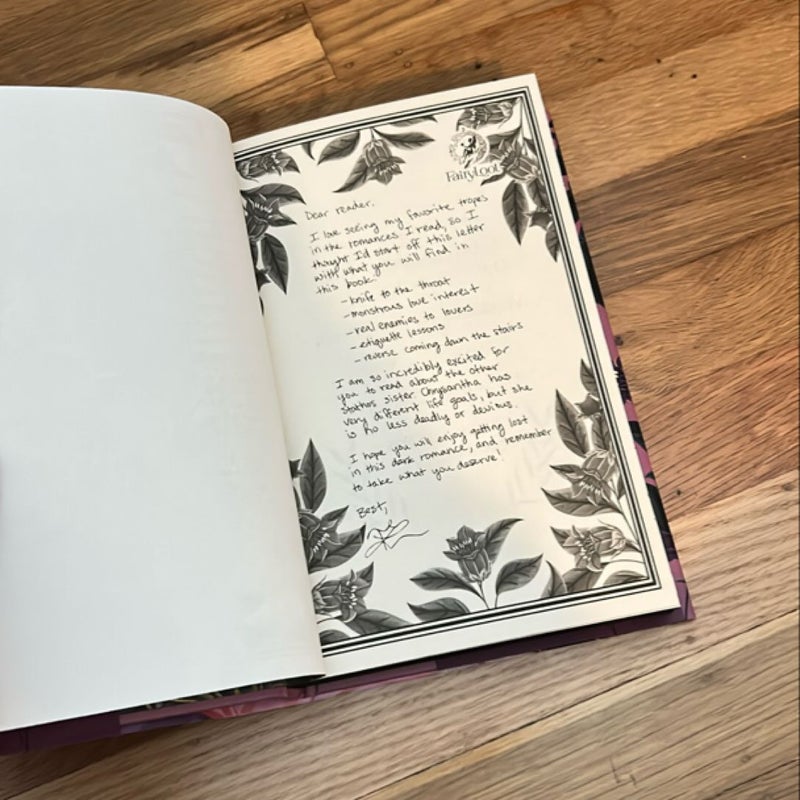 FairyLoot
Dear reader,
I love seeing my favorite tropes
in the romances I read, so I
thought I'd start off this letter
with what you will find in
this book.
- knife to the throat
- monstrous love interest
- real enemies to lovers
- etiquette lessons
- reverse coming down the stairs
I am so incredibly excited for
you to read about the other
Stathos sister. Chrysantha has
very different life goals, but she
is no less deadly or devious.
I hope you will enjoy getting lost
in this dark romance, and remember
to take what you deserve!
Best,